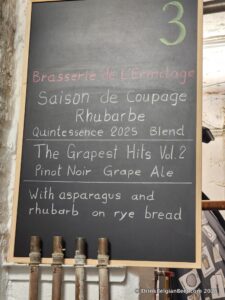 3
Brasserie de L'Ermitage
Saison de Coupage
Rhubarbe
Quintessence 2025 Blend
The Grapest Hits Vol.2
Pinot Noir Grape Ale
With asparagus and
rhubarb on rye bread